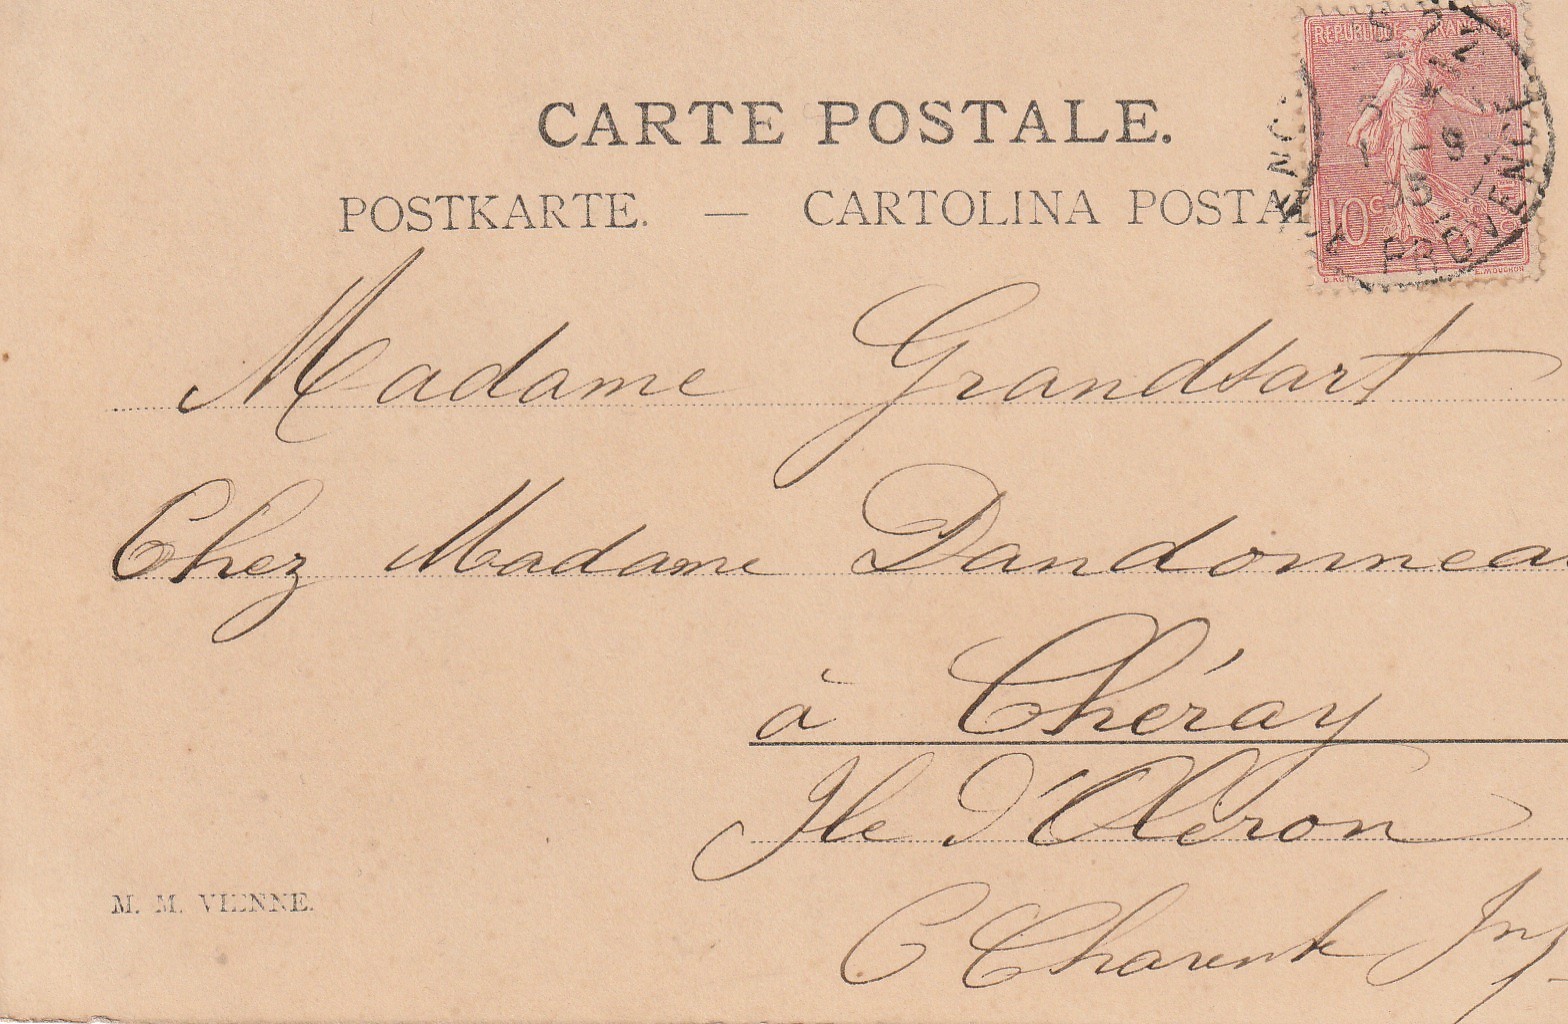 CARTE POSTALE.
POSTKARTE. — CARTOLINA POSTA
REPUBLIQUE FRANÇAISE
10c
PROVENCE
Madame Grandsart
Chez Madame Dandonnea
à Chéray
Ile d'Oléron
(Charente Inf
M. M. VIENNE.